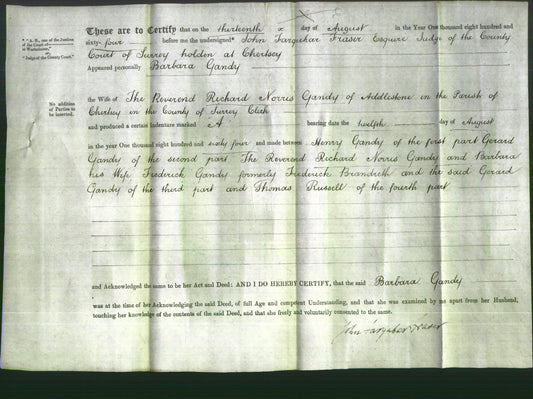 These are to Certify that on the thirteenth day of August in the Year One thousand eight hundred and
sixty four before me the undersigned* John Farquhar Fraser Esquire Judge of the County
Court of Surrey holden at Chertsey
Appeared personally Barbara Gandy
* "A. B., one of the Justices
of the Court of
at Westminster,"
or
"Judge of the County Court."
the Wife of The Reverend Richard Norris Gandy of Addlestone in the Parish of
No addition
of Parties to
be inserted.
Chertsey in the County of Surrey Clerk
and produced a certain Indenture marked A bearing date the twelfth day of August
in the year One thousand eight hundred and sixty four and made between Henry Gandy of the first part Gerard
Gandy of the second part The Reverend Richard Norris Gandy and Barbara
his Wife Frederick Gandy formerly Frederick Brandreth and the said Gerard
Gandy of the third part and Thomas Russell of the fourth part
and Acknowledged the same to be her Act and Deed: AND I DO HEREBY CERTIFY, that the said Barbara Gandy
was at the time of her Acknowledging the said Deed, of full Age and competent Understanding, and that she was examined by me apart from her Husband,
touching her knowledge of the contents of the said Deed, and that she freely and voluntarily consented to the same.
John Farquhar Fraser